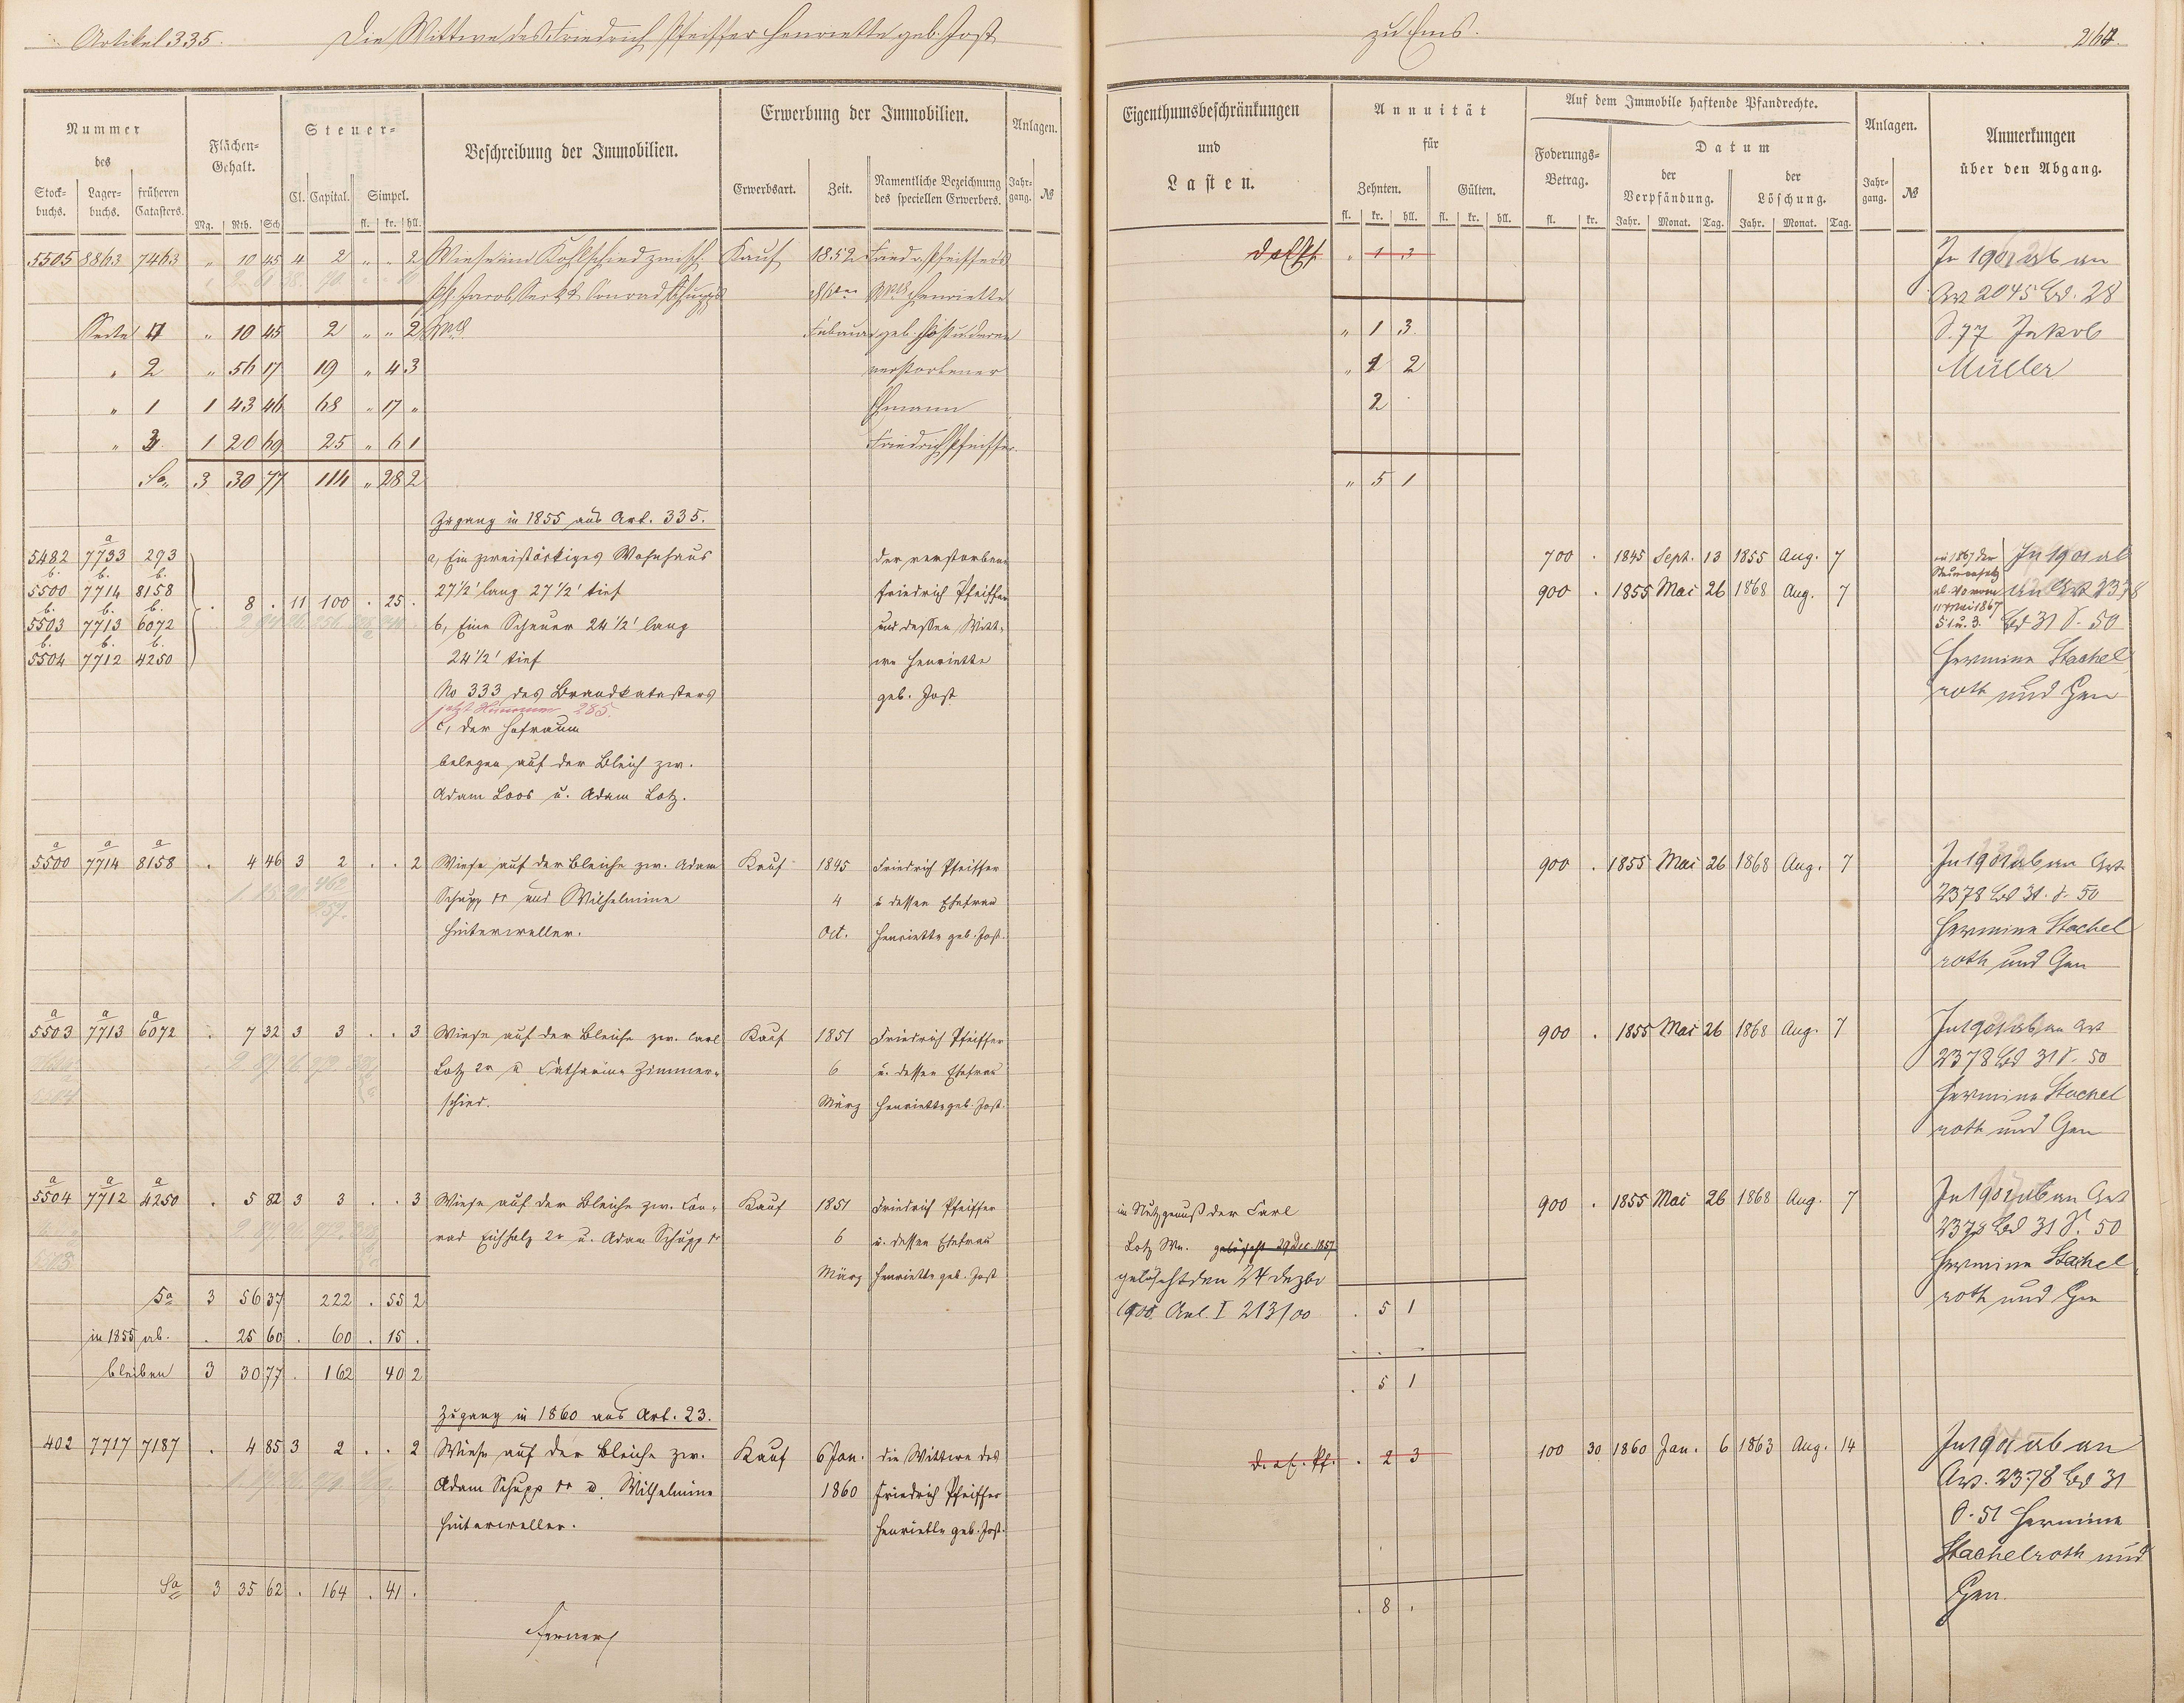 Artikel 335. Die Wittwe des Friedrich Pfeiffer Henriette geb. Jost zu Ems. 264.
Nummer des
Stockbuchs. Lagerbuchs. früheren Catasters.
Flächen-Gehalt.
Mg. Rth. Sch
Steuer-
Cl. Capital. Simpel.
fl. kr. hll.
Beschreibung der Immobilien.
Erwerbung der Immobilien.
Erwerbsart. Zeit. Namentliche Bezeichnung des speciellen Erwerbers.
Anlagen.
Jahrgang. №
Eigenthumsbeschränkungen
und
Lasten.
Annuität
für
Zehnten. Gülten.
fl. kr. hll. fl. kr. hll.
Auf dem Immobile haftende Pfandrechte.
Foderungs-Betrag.
fl. kr.
Datum
der Verpfändung. der Löschung.
Jahr. Monat. Tag. Jahr. Monat. Tag.
Anlagen.
Jahrgang. №
Anmerkungen
über den Abgang.
5505 8863 7463 " 10 45 4 2 " " 2 Wiese im Kohlschied zwisch. Kauf 1852 Friedr. Pfeiffer's " 1 3 In 1901 ab an
Jacob & Conrad Schupp's Wwe Henriette Art 2045 Bd. 28
Seite 4 " 10 45 2 " " 2 Wwe. Februar geb. Jost u. deren " 1 3 S. 77 Jakob
" 2 " 56 17 19 " 4 3 verstorbener " 1 2 Müller
" 1 1 43 46 68 " 17 " Ehmann 2
" 3 1 20 69 25 " 6 1 Friedrich Pfeiffer.
Sa. 3 30 77 114 " 28 2 " 5 1
Zugang in 1855 aus Art. 335.
5482 a 7733 293 a, Ein zweistöckiges Wohnhaus der verstorbene 700 . 1845 Sept. 13 1855 Aug. 7 In 1901 ab
b. 5500 b. 7714 b. 8158 27 1/2' lang 27 1/2' tief Friedrich Pfeiffer 900 . 1855 Mai 26 1868 Aug. 7 an Art 2378
. 8 . 11 100 . 25 .
b. 5503 b. 7713 b. 6072 b, Eine Scheuer 24 1/2' lang und dessen Witt- Bd 31 S. 50
b. 5504 b. 7712 b. 4250 24 1/2' tief we Henriette Hermine Stachel
No 333 des Brandkatasters geb. Jost roth und Gen
jetzt Nummer 285.
c, der Hofraum
belegen auf der Bleich zw.
Adam Loos u. Adam Lotz.
a 5500 a 7714 a 8158 . 4 46 3 2 . . 2 Wiese auf der Bleiche zw. Adam Kauf 1845 Friedrich Pfeiffer 900 . 1855 Mai 26 1868 Aug. 7 In 1901 ab an Art
Schupp 1r und Wilhelmine 4 u dessen Ehefrau 2378 Bd 31. S. 50
Hinterweller. Oct. Henriette geb. Jost. Hermine Stachel
roth und Gen
a 5503 a 7713 a 6072 . 7 32 3 3 . . 3 Wiese auf der Bleiche zw. Carl Kauf 1851 Friedrich Pfeiffer 900 . 1855 Mai 26 1868 Aug. 7 In 1901 ab an Art
Lotz 2r u Catharina Zimmer- 6 u. dessen Ehefrau 2378 Bd 31 S. 50
schied. März Henriette geb. Jost. Hermine Stachel
roth und Gen
a 5504 a 7712 a 4250 . 5 82 3 3 . . 3 Wiese auf der Bleiche zw. Con- Kauf 1851 Friedrich Pfeiffer in Nutzgenuß der Carl 900 . 1855 Mai 26 1868 Aug. 7 In 1901 ab an Art
rad Eichholz 2r u. Adam Schupp 1r 6 u. dessen Ehefrau Lotz Ww. gelöscht 29 Dec. 1857 2378 Bd 31 S. 50
März Henriette geb. Jost gelöscht den 24 Dezbr Hermine Stachel
Sa 3 56 37 222 . 55 2 1900. Anl. I 213/00 . 5 1 roth und Gen
in 1855 ab. . 25 60 . 60 . 15 .
bleiben 3 30 77 . 162 40 2 . 5 1
Zugang in 1860 aus Art. 23.
402 7717 7187 . 4 85 3 2 . . 2 Wiese auf der Bleiche zw. Kauf 6 Jan. die Wittwe des . 2 3 100 30 1860 Jan. 6 1863 Aug. 14 In 1901 ab an
Adam Schupp 1r u. Wilhelmine 1860 Friedrich Pfeiffer Art. 2378 Bd 31
Hinterweller. Henriette geb. Jost. S. 51 Hermine
Stachelroth und
Sa 3 35 62 . 164 . 41 . . 8 . Gen.
Ferner